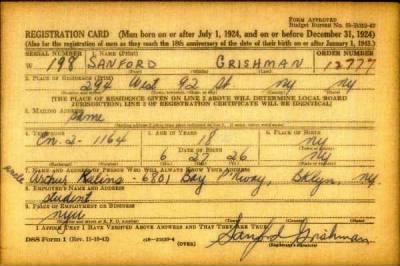 FORM APPROVED
REGISTRATION CARD (Men born on or after July 1, 1924, and on or before December 31, 1924)
(Also for the registration of men as they reach the 18th anniversary of the date of their birth on or after January 1, 1943.)
SERIAL NUMBER 1. NAME (Print) ORDER NUMBER
W 198 SANFORD GRISHMAN 12777
2. PLACE OF RESIDENCE (Print)
294 West 92 St. NY NY
[THE PLACE OF RESIDENCE GIVEN ON LINE 2 ABOVE WILL DETERMINE LOCAL BOARD
JURISDICTION; LINE 2 OF REGISTRATION CERTIFICATE WILL BE IDENTICAL]
3. MAILING ADDRESS
Same
4. TELEPHONE 5. AGE IN YEARS 6. PLACE OF BIRTH
En. 2-1164 18 NY
DATE OF BIRTH
6 27 26 NY
7. NAME AND ADDRESS OF PERSON WHO WILL ALWAYS KNOW YOUR ADDRESS
uncle Arthur - 6801 Bay Pkway, Bklyn, NY
8. EMPLOYER'S NAME AND ADDRESS
student
9. PLACE OF EMPLOYMENT OR BUSINESS
NYU
I AFFIRM THAT I HAVE VERIFIED ABOVE ANSWERS AND THAT THEY ARE TRUE.
DSS Form 1 (OVER) Sanford Grishman